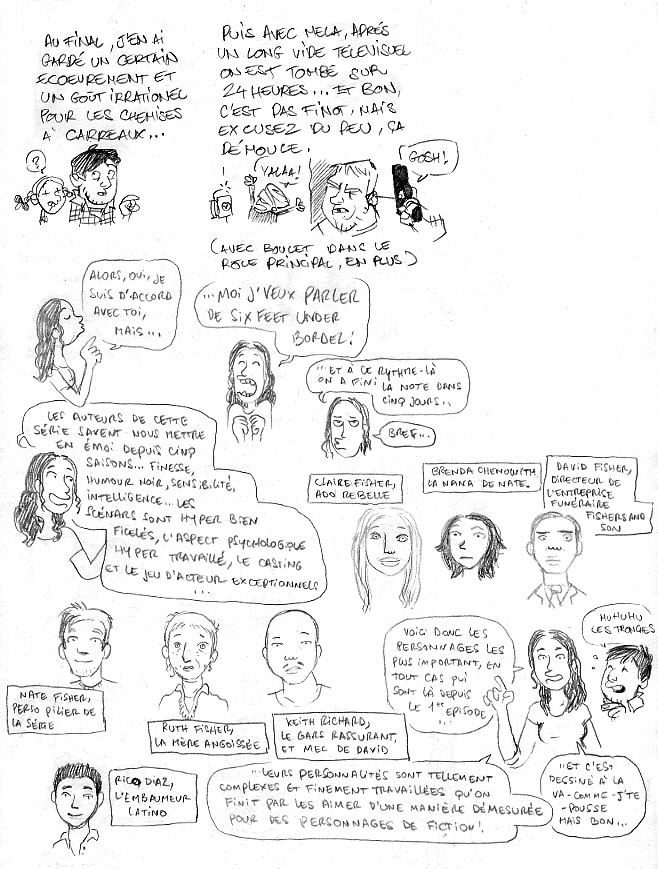 AU FINAL, J'EN AI
GARDÉ UN CERTAIN
ECOEUREMENT ET
UN GOÛT IRRATIONEL
POUR LES CHEMISES
A' CARREAUX...
?
PUIS AVEC MELA, APRÉS
UN LONG VIDE TELEVISUEL
ON EST TOMBÉ SUR
24 HEURES... ET BON,
C'EST PAS FINOT, MAIS
EXCUSEZ DU PEU, ÇA
DÉMOULE.
!
YALAA!
GOSH!
(AVEC BOULET DANS LE
ROLE PRINCIPAL, EN PLUS)
ALORS, OUI, JE
SUIS D'ACCORD
AVEC TOI,
MAIS...
...MOI J'VEUX PARLER
DE SIX FEET UNDER
BORDEL!
...ET À CE RYTHME-LÀ
ON A FINI LA NOTE DANS
CINQ JOURS..
BREF...
LES AUTEURS DE CETTE
SÉRIE SAVENT NOUS METTRE
EN ÉMOI DEPUIS CINQ
SAISONS... FINESSE,
HUMOUR NOIR, SENSIBILITÉ,
INTELLIGENCE... LES
SCÉNARS SONT HYPER BIEN
FICELÉS, L'ASPECT PSYCHOLOGIQUE
HYPER TRAVAILLÉ, LE CASTING
ET LE JEU D'ACTEUR EXCEPTIONNELS
...
CLAIRE FISHER,
ADO REBELLE
BRENDA CHENOWITH
LA NANA DE NATE.
DAVID FISHER,
DIRECTEUR DE
L'ENTREPRISE
FUNÉRAIRE
FISHERS AND
SON
NATE FISHER,
PERSO PILIER DE
LA SÉRIE
RUTH FISHER,
LA MÈRE ANGOISSÉE
KEITH RICHARD,
LE GARS RASSURANT,
ET MEC DE DAVID
VOICI DONC LES
PERSONNAGES LES
PLUS IMPORTANT, EN
TOUT CAS QUI
SONT LÀ DEPUIS
LE 1er EPISODE
...
HUHUHU
LES TRONCHES
RICO DIAZ,
L'EMBAUMEUR
LATINO
...LEURS PERSONNALITÉS SONT TELLEMENT
COMPLEXES ET FINEMENT TRAVAILLÉES QU'ON
FINIT PAR LES AIMER D'UNE MANIÈRE DÉMESURÉE
POUR DES PERSONNAGES DE FICTION!
..ET C'EST
DESSINÉ À LA
VA-COMME-J'TE
-POUSSE
MAIS BON...